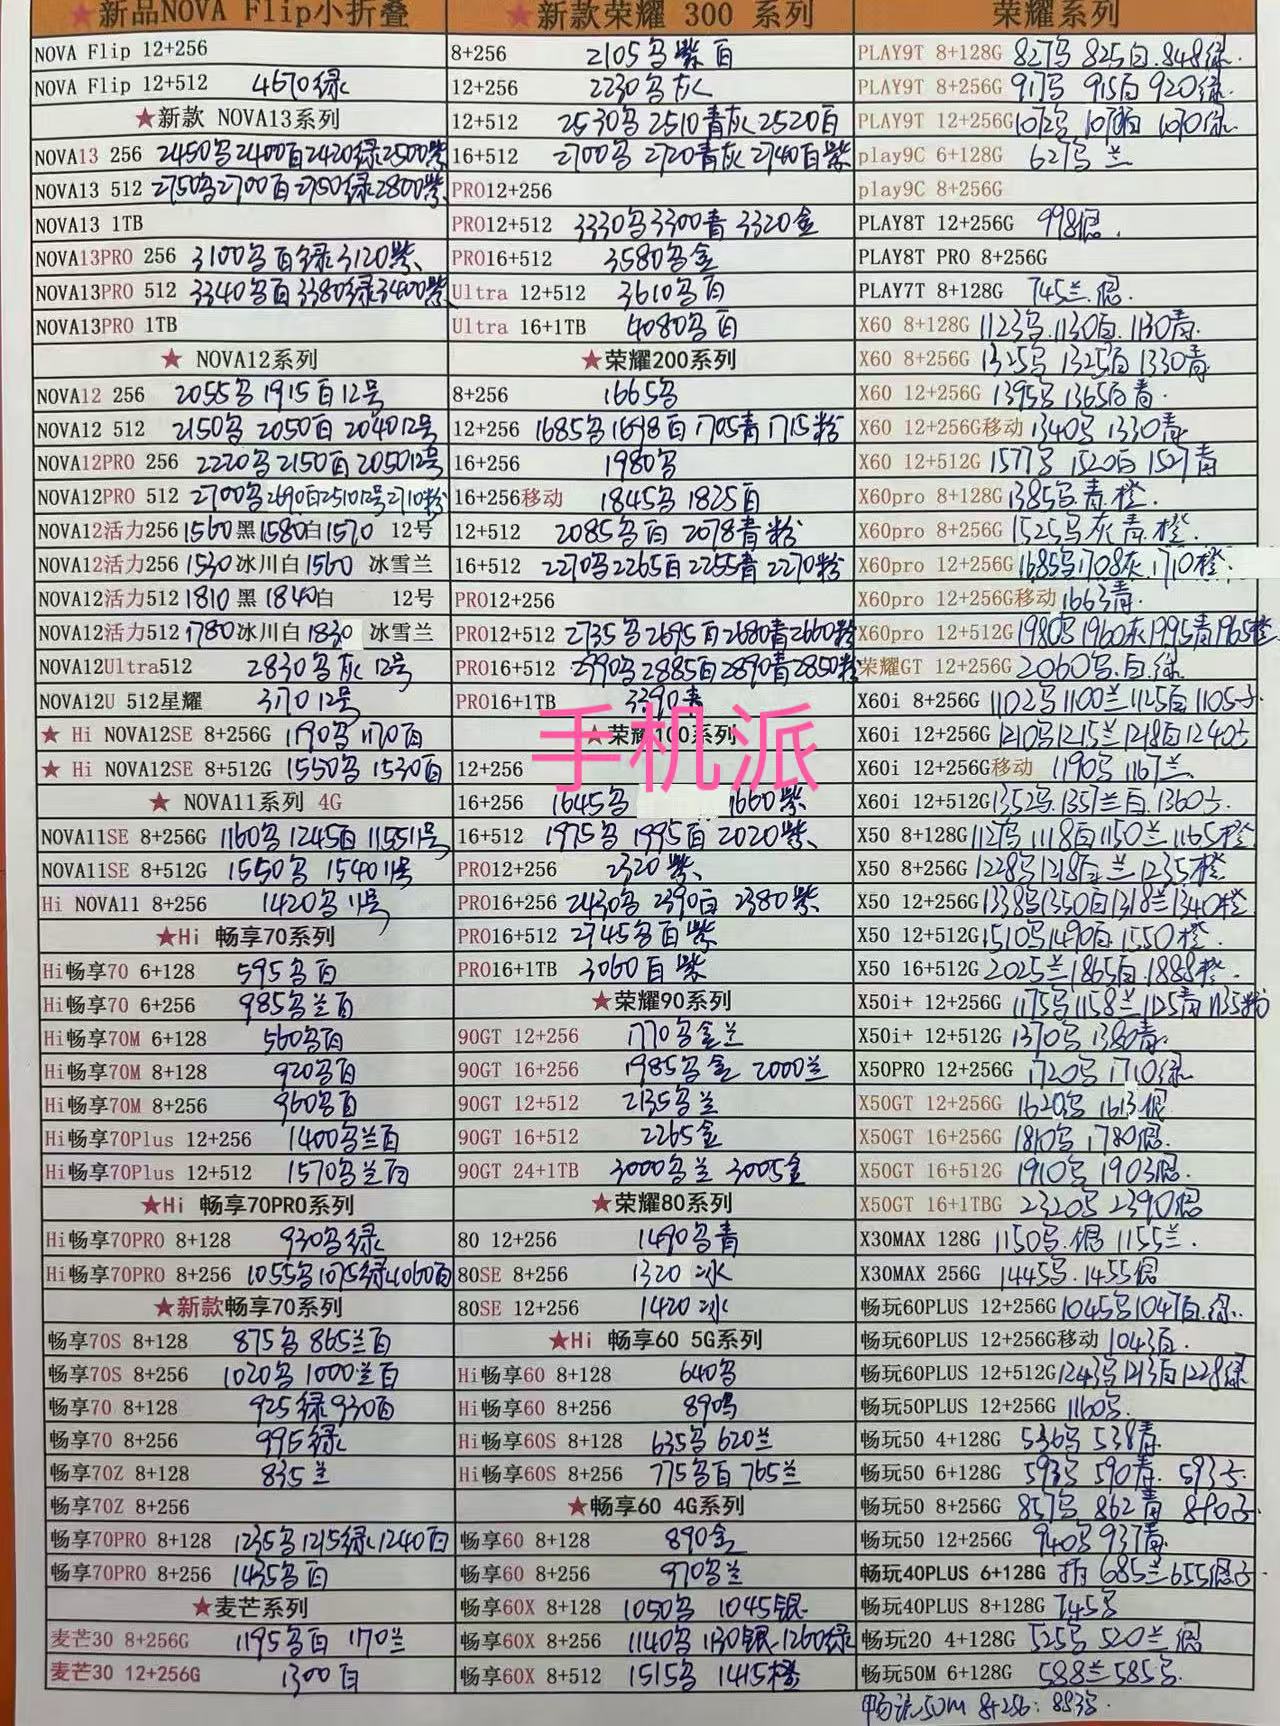 ★新品NOVA Flip小折叠
NOVA Flip 12+256
NOVA Flip 12+512 4670绿
★新款 NOVA13系列
NOVA13 256 2450乌2400百2420绿2500紫
NOVA13 512 2750乌2700百2750绿2800紫
NOVA13 1TB
NOVA13PRO 256 3100乌百绿3120紫
NOVA13PRO 512 3340乌百3380绿3400紫
NOVA13PRO 1TB
★ NOVA12系列
NOVA12 256 2055乌1915百12号
NOVA12 512 2150乌2050百204012号
NOVA12PRO 256 2220乌2150百205012号
NOVA12PRO 512 2700乌2690百251012号2710粉
NOVA12活力256 1560黑1580白1570 12号
NOVA12活力256 1530冰川白1560 冰雪兰
NOVA12活力512 1810黑1840白 12号
NOVA12活力512 1780冰川白1830 冰雪兰
NOVA12Ultra512 2830乌灰12号
NOVA12U 512星耀 317012号
★ Hi NOVA12SE 8+256G 1190乌1170百
★ Hi NOVA12SE 8+512G 1550乌1530百
★ NOVA11系列 4G
NOVA11SE 8+256G 1160乌1245百115511号
NOVA11SE 8+512G 1550乌154011号
Hi NOVA11 8+256 1420乌11号
★Hi 畅享70系列
Hi畅享70 6+128 595乌百
Hi畅享70 6+256 985乌兰百
Hi畅享70M 6+128 560乌百
Hi畅享70M 8+128 920乌百
Hi畅享70M 8+256 960乌百
Hi畅享70Plus 12+256 1400乌兰百
Hi畅享70Plus 12+512 1570乌兰百
★Hi 畅享70PRO系列
Hi畅享70PRO 8+128 930乌绿
Hi畅享70PRO 8+256 1055乌1075绿1060百
★新款畅享70系列
畅享70S 8+128 875乌865兰百
畅享70S 8+256 1020乌1000兰百
畅享70 8+128 925绿930百
畅享70 8+256 995绿
畅享70Z 8+128 835兰
畅享70Z 8+256
畅享70PRO 8+128 1235乌1215绿1240百
畅享70PRO 8+256 1435乌百
★麦芒系列
麦芒30 8+256G 1195乌百 1170兰
麦芒30 12+256G 1300百
★新款荣耀 300 系列
8+256 2105乌紫百
12+256 2230乌灰
12+512 2530乌2510青灰2520百
16+512 2700乌2720青灰2740百紫
PRO12+256
PRO12+512 3330乌3300青3320金
PRO16+512 3580乌金
Ultra 12+512 3610乌百
Ultra 16+1TB 4080乌百
★荣耀200系列
8+256 1665乌
12+256 1685乌1698百1705青1715粉
16+256 1980乌
16+256移动 1845乌1825百
12+512 2085乌百2078青粉
16+512 2270乌2265百2255青2270粉
PRO12+256
PRO12+512 2735乌2695百2680青2660粉
PRO16+512 2990乌2885百2890青2850粉
PRO16+1TB 3390青
★荣耀100系列
12+256
16+256 1645乌 1660紫
16+512 1975乌1995百2020紫
PRO12+256 2320紫
PRO16+256 2430乌2390百2380紫
PRO16+512 2745乌百紫
PRO16+1TB 3060百紫
★荣耀90系列
90GT 12+256 1770乌金兰
90GT 16+256 1985乌金2000兰
90GT 12+512 2135乌兰
90GT 16+512 2265金
90GT 24+1TB 3000乌兰3005金
★荣耀80系列
80 12+256 1490乌青
80SE 8+256 1320冰
80SE 12+256 1420冰
★Hi 畅享60 5G系列
Hi畅享60 8+128 640乌
Hi畅享60 8+256 890乌
Hi畅享60S 8+128 635乌620兰
Hi畅享60S 8+256 775乌百765兰
★畅享60 4G系列
畅享60 8+128 890金
畅享60 8+256 970乌兰
畅享60X 8+128 1050乌 1045银
畅享60X 8+256 1140乌1130银1260绿
畅享60X 8+512 1515乌1415橙
荣耀系列
PLAY9T 8+128G 827乌825百.848绿.
PLAY9T 8+256G 917乌915百920绿.
PLAY9T 12+256G1072乌1070百1070绿.
play9C 6+128G 627乌兰
play9C 8+256G
PLAY8T 12+256G 998银.
PLAY8T PRO 8+256G
PLAY7T 8+128G 745兰.银.
X60 8+128G 1123乌.1130百.1130青.
X60 8+256G 1325乌1325百1330青
X60 12+256G 1395乌1365百青.
X60 12+256G移动 1340乌1330青
X60 12+512G 1577乌1520百1527青
X60pro 8+128G 1385乌青.橙.
X60pro 8+256G 1525乌灰青.橙.
X60pro 12+256G 1685乌1708灰.1710橙.
X60pro 12+256G移动 1663青.
X60pro 12+512G1980乌1960灰1995青1965橙
荣耀GT 12+256G 2060乌.百.绿
X60i 8+256G 1102乌1100兰1125百1105
X60i 12+256G 1210乌1215兰1218百1240
X60i 12+256G移动 1190乌1167兰.
X60i 12+512G1352乌.1357兰百.1360
X50 8+128G1127乌1118百1150兰1165橙
X50 8+256G 1228乌1218百.兰1235橙
X50 12+256G1338乌1350百1318兰1340橙
X50 12+512G1510乌1490百.1550橙.
X50 16+512G 2025兰1865百.1888橙.
X50i+ 12+256G 1175乌1158兰1125青1135粉
X50i+ 12+512G 1370乌1380青.
X50PRO 12+256G 1720乌1710绿
X50GT 12+256G 1620乌1613银
X50GT 16+256G 1810乌1780银.
X50GT 16+512G 1910乌1903银.
X50GT 16+1TBG 2320乌2390银
X30MAX 128G 1150乌.银1155兰.
X30MAX 256G 1445乌.1455银
畅玩60PLUS 12+256G1045乌1047百.绿.
畅玩60PLUS 12+256G移动 1043百.
畅玩60PLUS 12+512G1243乌1213百1228绿
畅玩50PLUS 12+256G 1160乌.
畅玩50 4+128G 536乌538青.
畅玩50 6+128G 593乌590青.593
畅玩50 8+256G 857乌862青890
畅玩50 12+256G 940乌937青
畅玩40PLUS 6+128G 685兰655银
畅玩40PLUS 8+128G 745乌
畅玩20 4+128G 525乌520兰银
畅玩50M 6+128G 588兰585乌.
畅玩50M 8+256: 883乌.
手机派